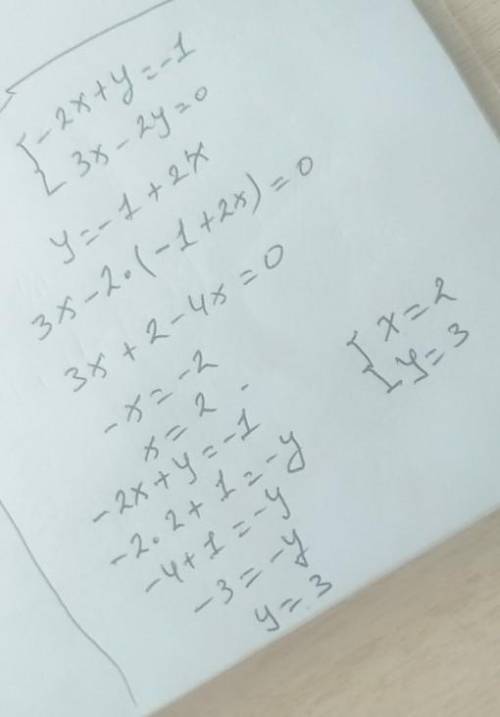 -2x+y=-1
3x-2y=0
y=-1+2x
3x-2·(-1+2x)=0
3x+2-4x=0
-x=-2
x=2
-2x+y=-1
-2·2+1=-y
-4+1=-y
-3=-y
y=3
x=2
y=3